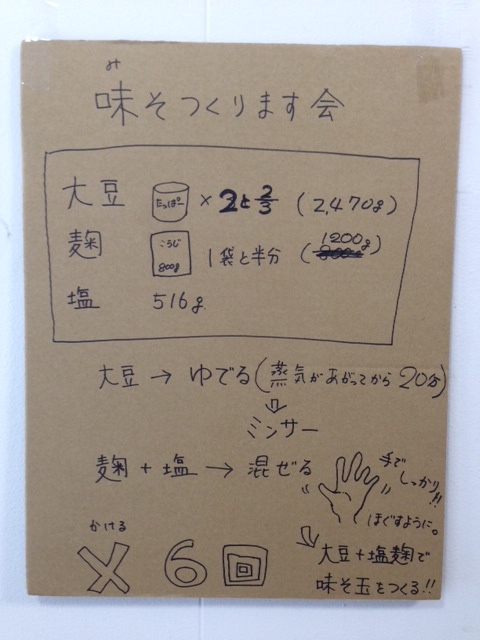 み
味そつくります会
大豆 たっぱー × 2と2/3 (2,470g)
麹 こうじ 800g 1袋と半分 (1200g)
塩 516g
大豆 → ゆでる(蒸気があがってから20分)
⇩
ミンサー
麹 + 塩 → 混ぜる 手でしっかり!!
ほぐすように。
かける
× 6回
大豆+塩麹で
味そ玉をつくる!!